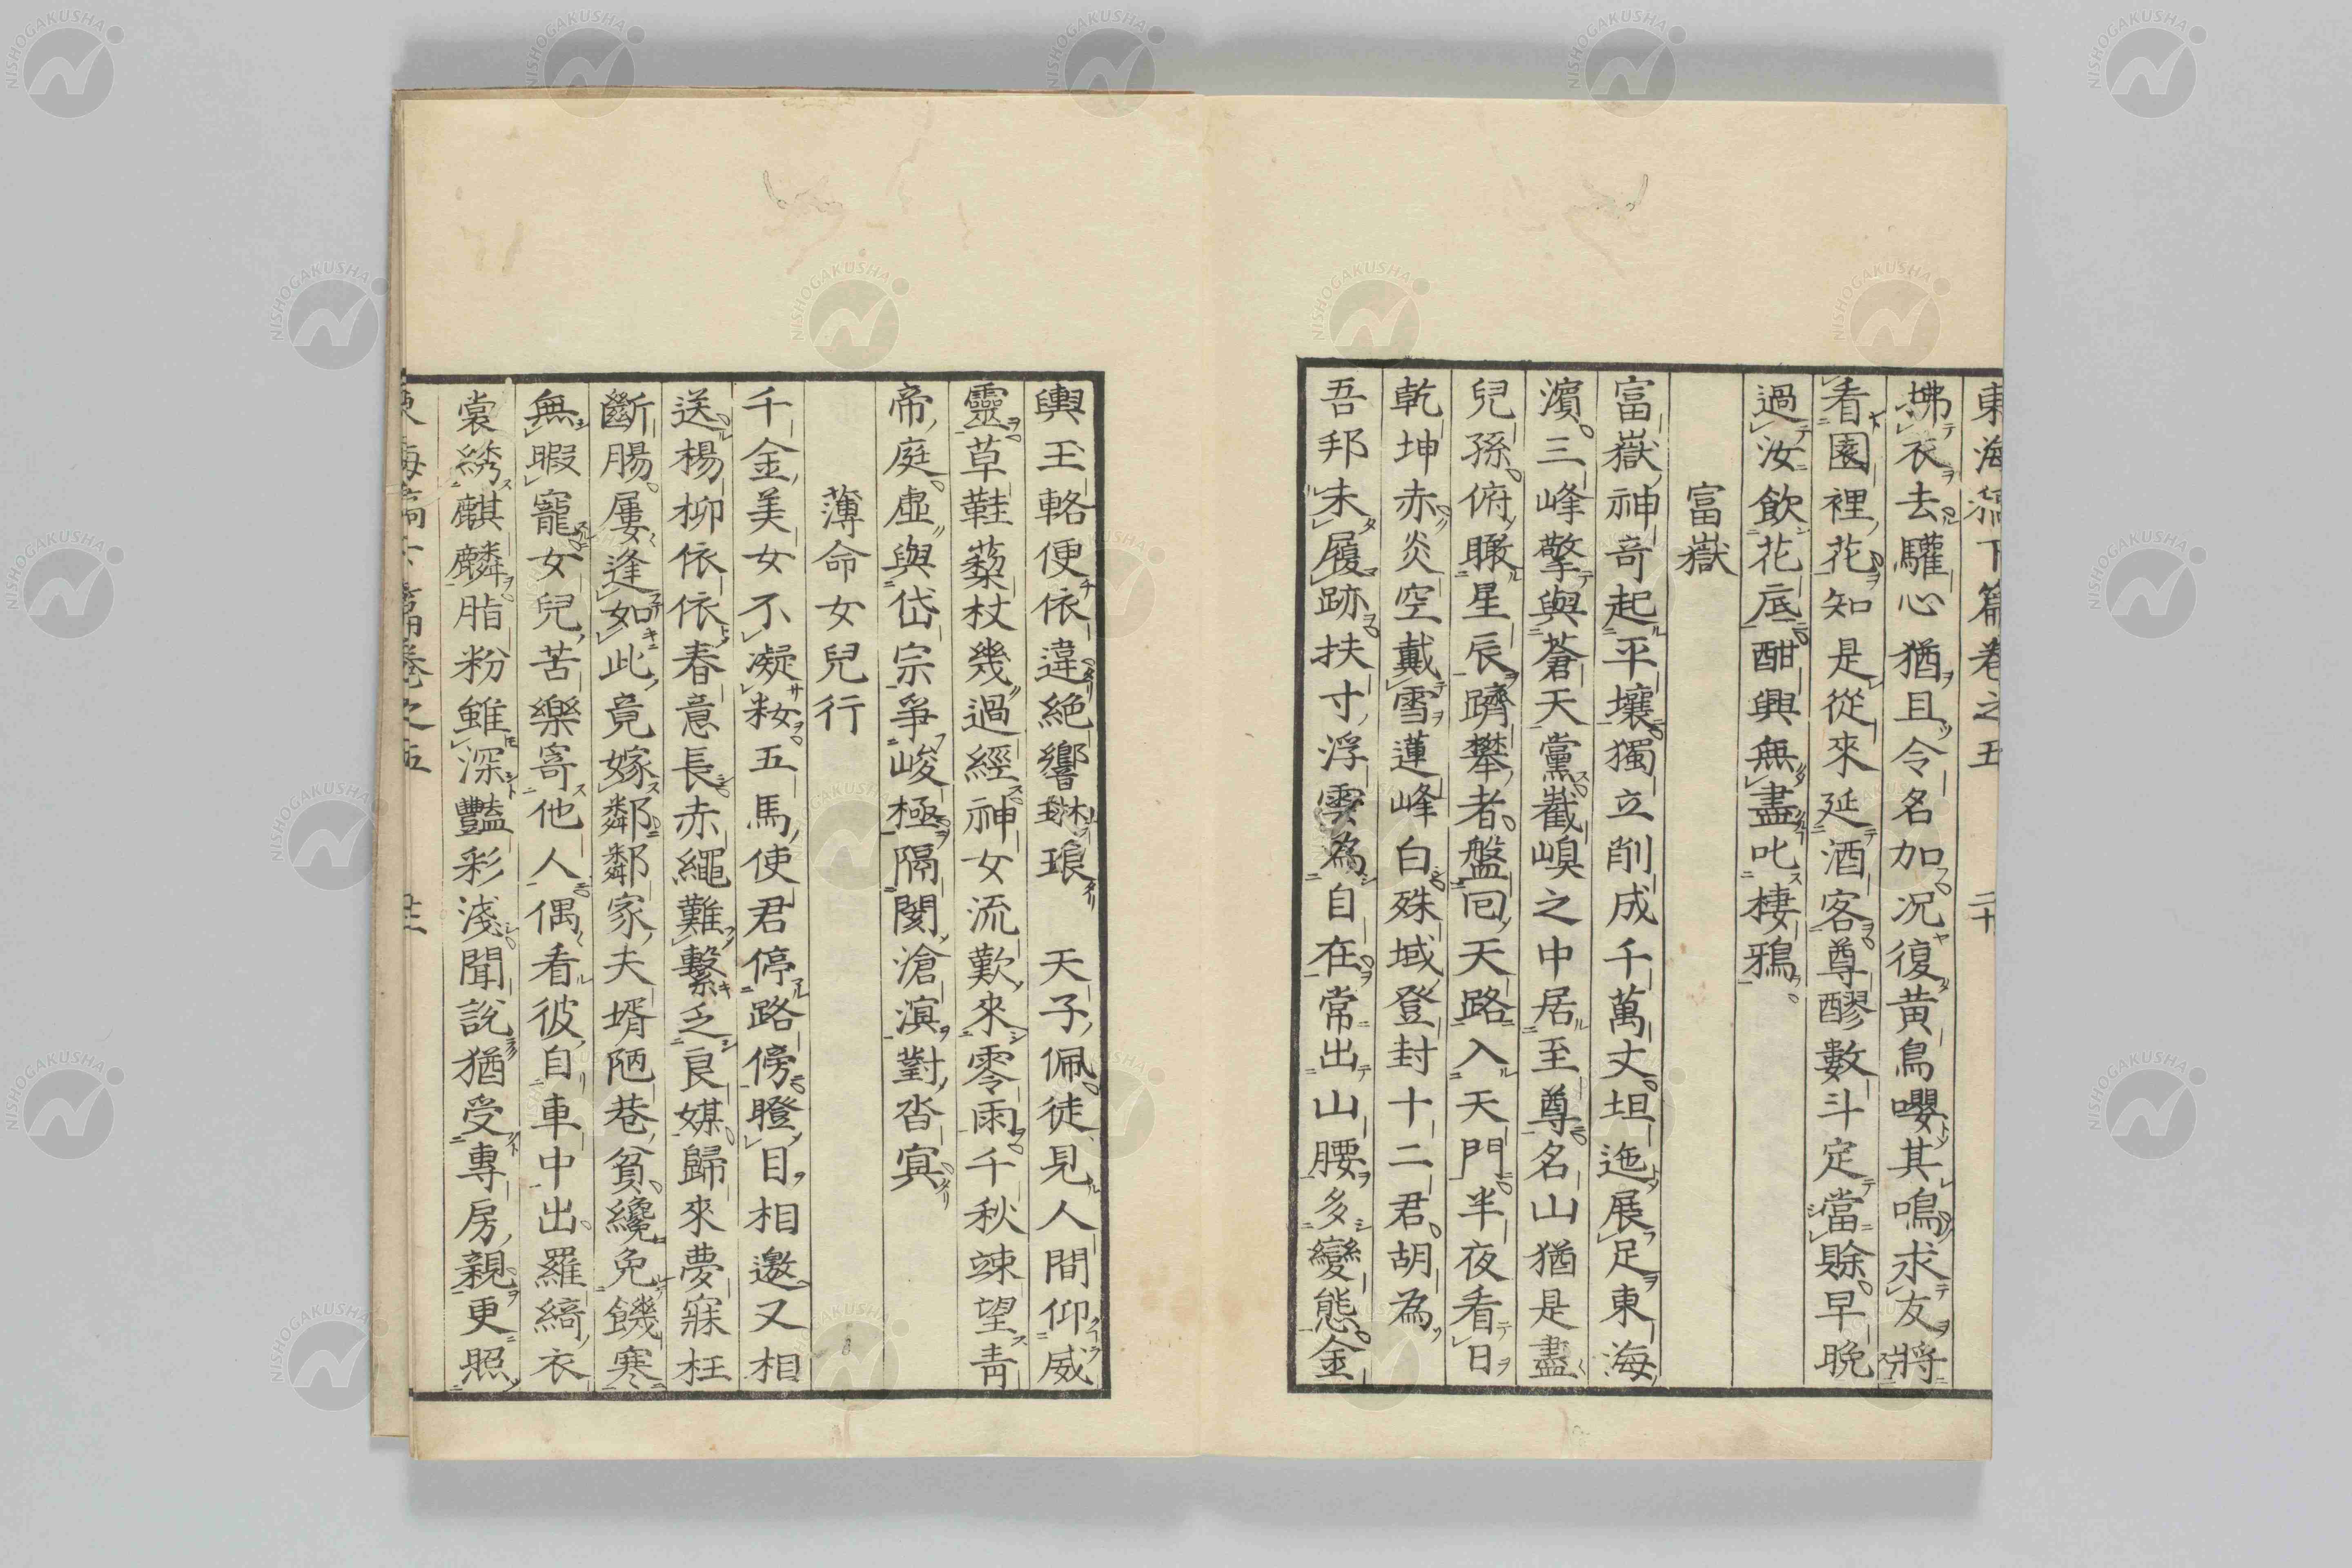 東海稿下篇卷之五 二十
拂衣去驩心猶且令名加况復黃鳥嚶其鳴求友將
看園裡花知是從來延酒客尊醪數斗定當賖早晚
過汝飲花底酣興無盡叱棲鴉
富嶽
富嶽神奇起平壤獨立削成千萬丈坦迤展足東海
濵三峰擎與蒼天黨嶻嵲之中居至尊名山猶是盡
兒孫俯瞰星辰躋攀者盤回天路入天門半夜看日
乾坤赤炎空戴雪蓮峰白殊域登封十二君胡為
吾邦未履跡扶寸浮雲為自在常出山腰多變態金
輿玉輅便依違絶響琳琅 天子佩徒見人間仰威
靈草鞋藜杖幾過經神女流歎來零雨千秋竦望青
帝庭虛與岱宗爭峻極隔閡滄溟對沓冥
薄命女兒行
千金美女不凝籹五馬使君停路傍瞪目相邀又相
送楊柳依依春意長赤繩難繫乏良媒歸來夢寐枉
斷腸屢逢如此竟嫁鄰鄰家夫壻陋巷貧纔免饑寒
無暇寵女兒苦樂寄他人偶看彼自車中出羅綺衣
裳綉麒麟脂粉雖深豔彩淺聞說猶受專房親更照